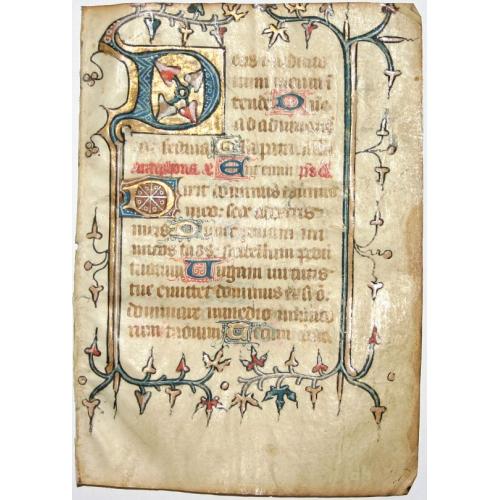 Deus in adiuto
rium meum i
tende Dne
ad adiuvand
me festina Gloria patri
Antiphona ps
Dixit dominus domino
meo sede a dextris
meis Donec ponam ini
micos tuos scabellum pedu
tuorum Virgam virtutis
tue emittet dominus ex syo
dominare in medio inimico
rum tuorum Tecum